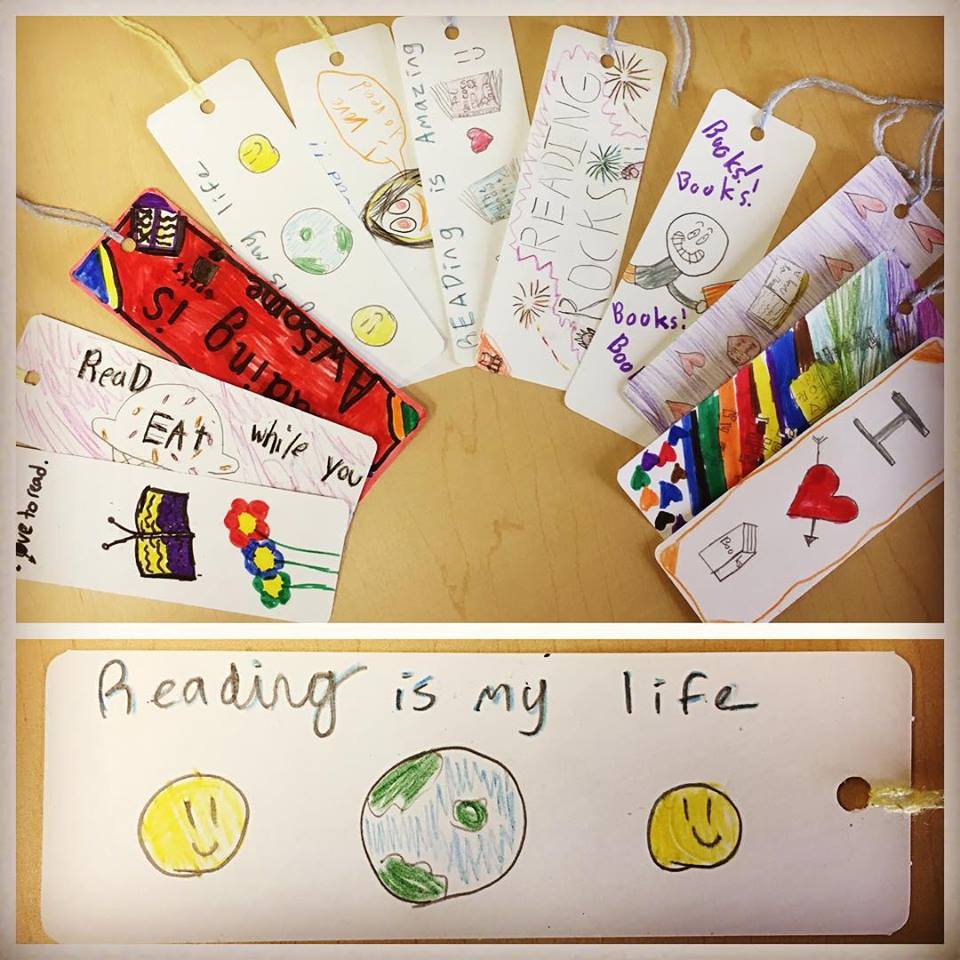 love to read.
Read
EAt
while you
Reading is
Awsome
life
is my
Love
Reading is Amazing
READING
ROCKS
Books!
Books!
Books!
Boo
H
Boo
Reading is my life